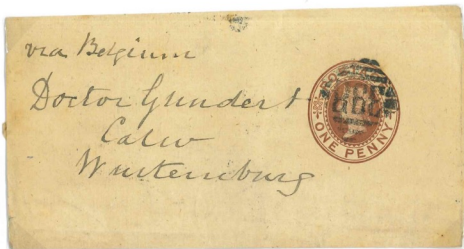 via Belgium
Doctor Gundert
Calw
Wurtemburg
ONE PENNY